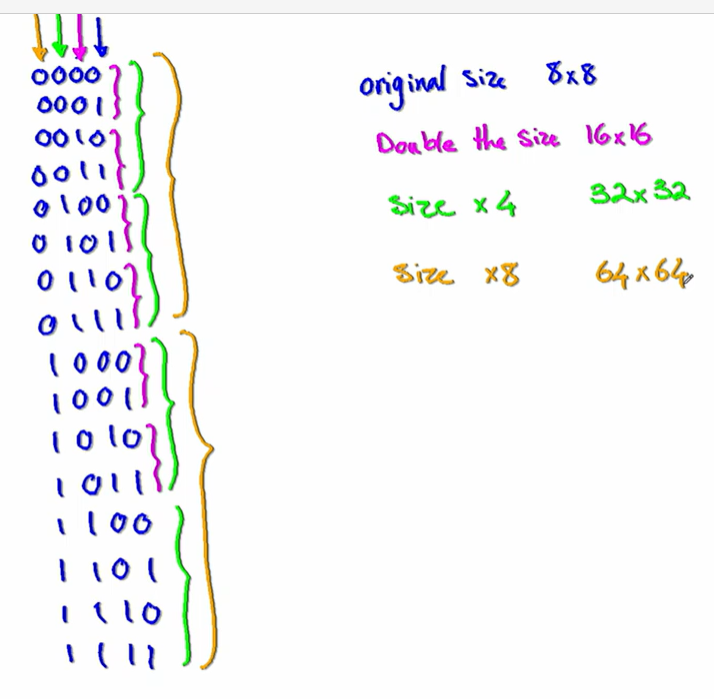 0000
0001
0010
0011
0100
0101
0110
0111
1000
1001
1010
1011
1100
1101
1110
1111
original size 8x8
Double the size 16x16
size x4 32x32
size x8 64x64